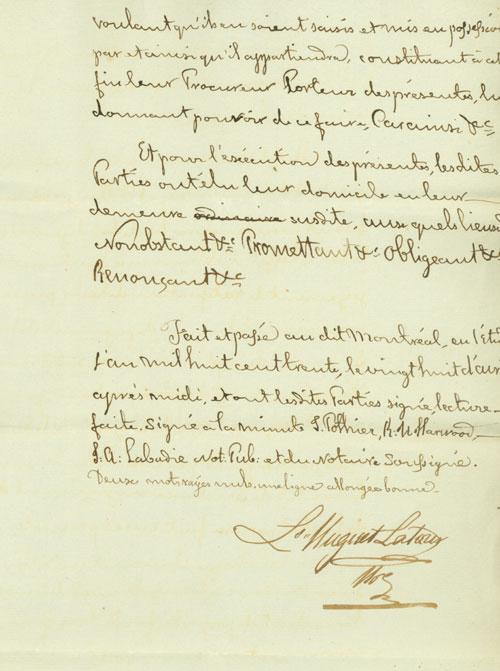 voulant qu'ils en soient saisis et mis en possession
par et ainsi qu'il appartiendra, constituant à cet
fin leur Procureur Porteur des présentes, lui
donnant pouvoir de ce faire, Car ainsi &c
Et pour l'exécution des présentes, lesdites
Parties ont élu leur domicile en leur
demeure ordinaire susdite, auxquels lieux
Nonobstant &c Promettant &c Obligeant &c
Renonçant &c
Fait et passé au dit Montréal, en l'Etu
L'an mil huit cent trente, le vingt huit d'avr
après midi, et ont lesdites Parties signé, lecture
faite. Signé à la minute T. Pothier, R. U. Harwood,
J. A. Labadie Not. Pub. et du Notaire Soussigné.
Deux mots rayés nuls. une ligne allongée bonne.
Ls. Huguet Latour